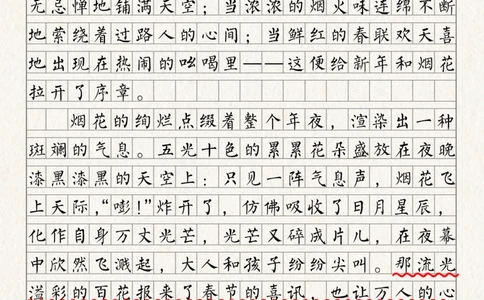 无忌惮地铺满天空；当浓浓的烟火味连绵不断
地萦绕着过路人的心间；当鲜红的春联欢天喜
地出现在热闹的吆喝里——这便给新年和烟花
拉开了序章。
烟花的绚烂点缀着整个年夜，渲染出一种
斑斓的气息。五光十色的累累花朵盛放在夜晚
漆黑漆黑的天空上：只见一阵气息声，烟花飞
上天际，“嘭！”炸开了，仿佛吸收了日月星辰，
化作自身万丈光芒，光芒又碎成片儿，在夜幕
中欣然飞溅起，大人和孩子纷纷尖叫。那流光
溢彩的百花报来了春节的喜讯，也让万人的心